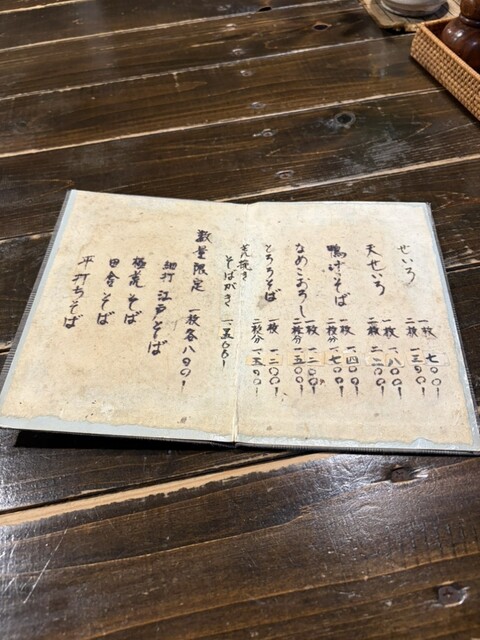 せいろ 一枚 七〇〇!
二枚 一、三〇〇!
天せいろ 一枚 一、八〇〇!
二枚 二、二〇〇!
鴨汁そば 一枚 一、四〇〇!
二枚分 一、七〇〇!
なめこおろし 一枚 一、二〇〇!
二枚分 一、五〇〇!
とろろそば 一枚 一、二〇〇!
二枚分 一、五〇〇!
荒挽き そばがき 一、五〇〇!
数量限定 一枚各八〇〇!
細打 江戸そば
極荒そば
田舎そば
平打ちそば